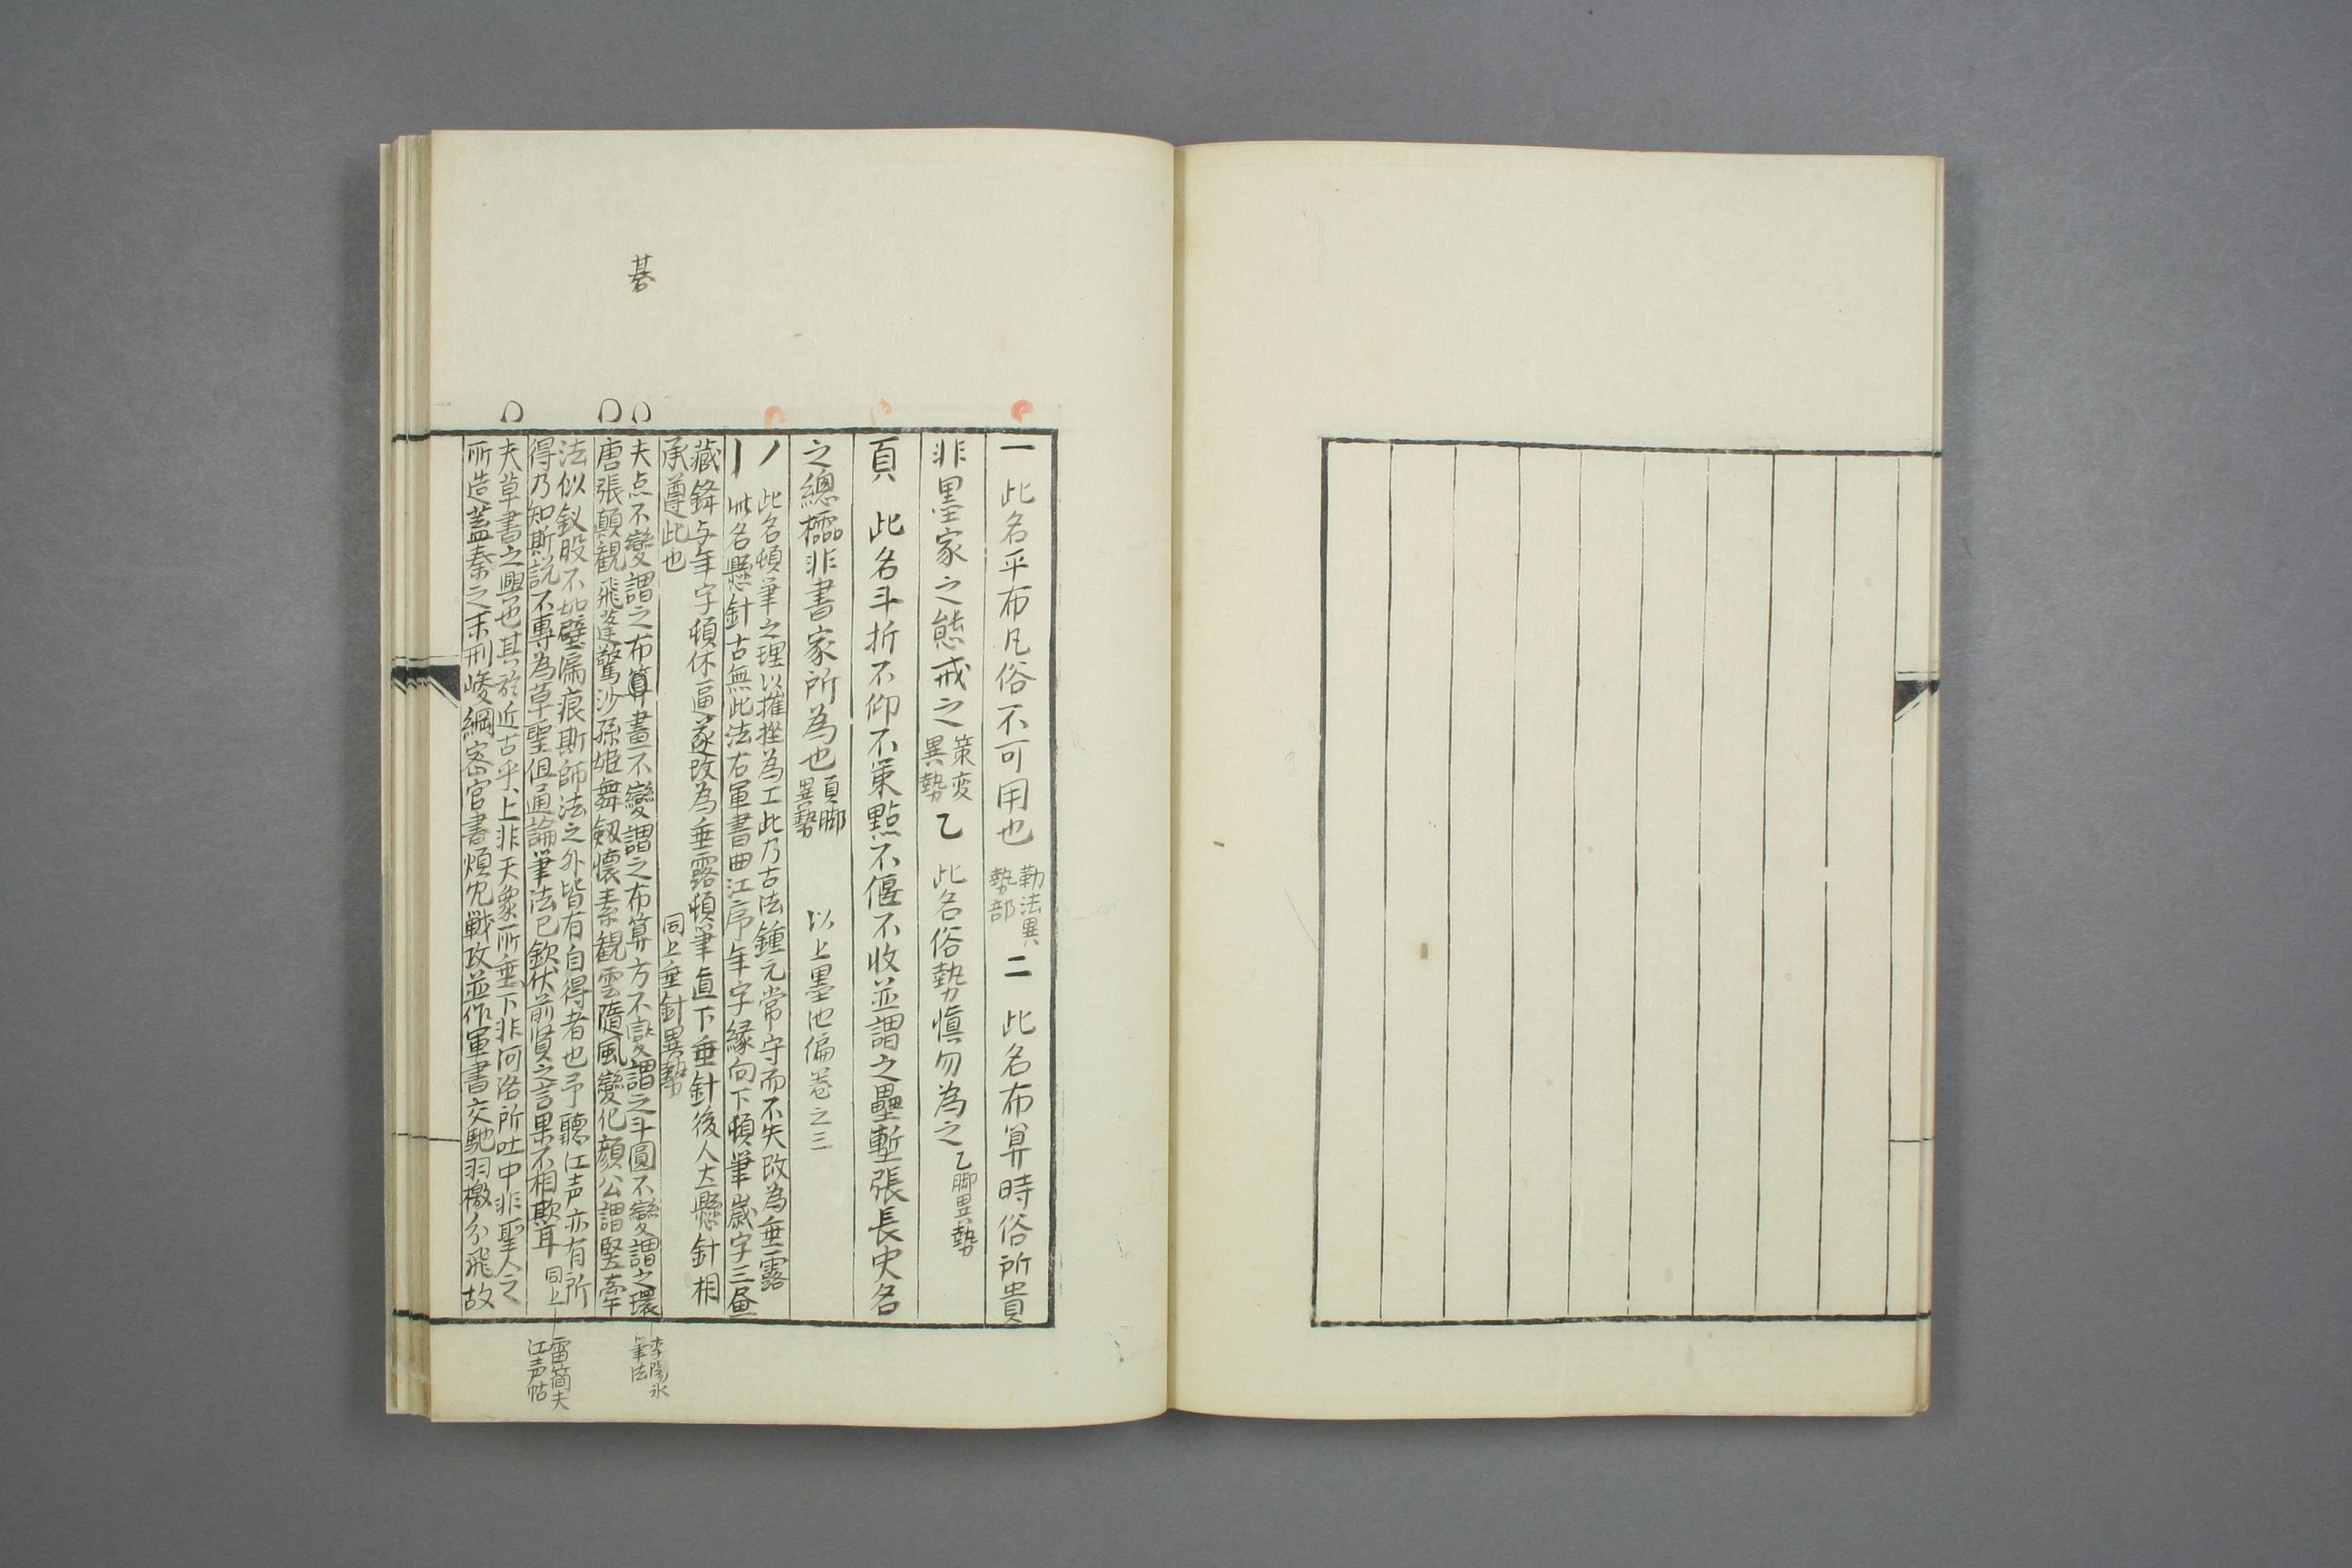 一 此名平布凡俗不可用也 勒法異勢部 二 此名布算時俗所貴
非墨家之態戒之 策変異勢 乙 此名俗勢慎勿為之 乙脚異勢
頁 此名斗折不仰不策點不偃不收並謂之壘塹張長史名
之總櫺非書家所為也 頁脚異勢 以上墨池偏卷之三
丿 此名頓筆之理以摧挫為工此乃古法鍾元常守而不失改為垂露
丨 此名懸針古無此法右軍書曲江序年字縁向下頓筆歳字三畫
藏鋒与年字頓休逼遂改為垂露頓筆直下垂針後人立懸針相
承遵此也 同上垂針異勢
碁
夫点不變謂之布算畫不變謂之布算方不變謂之斗圓不變謂之環 李陽氷筆法
唐張顛観飛蓬驚沙孫姫舞剱懐素観雲隨風變化顔公謂竪牽
法似釵股不如壁漏痕斯師法之外皆有自得者也予聽江声亦有所
得乃知斯説不專為草聖但通論筆法已欽伏前賢之言果不相欺耳 同上 雷簡夫江声帖
夫草書之興也其於近古乎上非天象所垂下非河洛所吐中非聖人之
所造蓋秦之末刑峻綱密官書煩冗戦攻並作軍書交馳羽檄分飛故